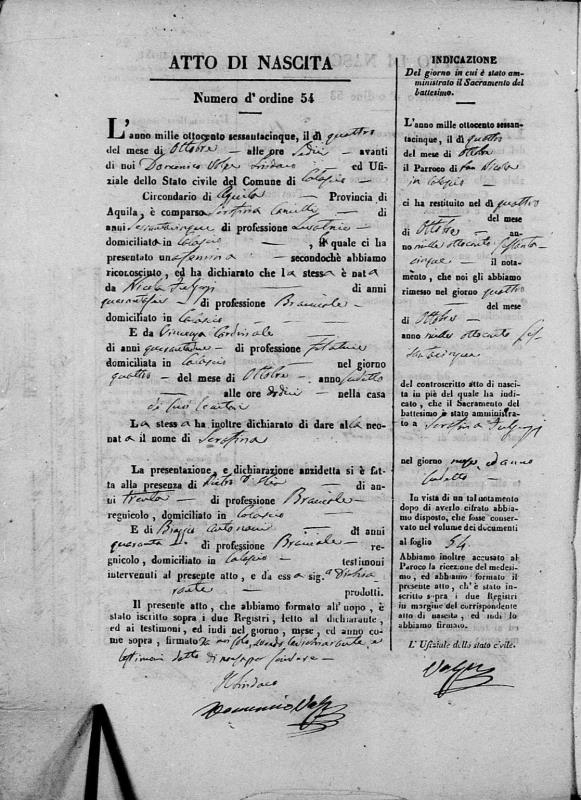 ATTO DI NASCITA
Numero d'ordine 54
L'anno mille ottocento sessantacinque, il dì quattro
del mese di Ottobre alle ore avanti
di noi Domenico Sindaco ed Ufi-
ziale dello Stato civile del Comune di Calascio
Circondario di Aquila Provincia di
Aquila, è comparsa Serafina di
anni sessantacinque di professione
domiciliata in Calascio, la quale ci ha
presentato una femina secondochè abbiamo
riconosciuto, ed ha dichiarato che la stessa è nata
da Nicola di anni
di professione Bracciale
domiciliato in Calascio
E da Vincenza Cardinale
di anni quarantuno di professione Filatrice
domiciliata in Calascio nel giorno
quattro del mese di Ottobre anno sudetto
alle ore dodici nella casa
di
La stessa ha inoltre dichiarato di dare alla neo-
nata il nome di Serafina
La presentazione, e dichiarazione anzidetta si è fat-
ta alla presenza di di an-
ni trenta di professione Bracciale
regnicolo, domiciliato in Calascio
E di Biagio di anni
quaranta di professione Bracciale re-
gnicolo, domiciliato in Calascio testimoni
intervenuti al presente atto, e da essa sig.ª Dichia
rante prodotti.
Il presente atto, che abbiamo formato all'uopo, è
stato iscritto sopra i due Registri, letto al dichiarante,
ed ai testimoni, ed indi nel giorno, mese, ed anno co-
me sopra, firmato da noi la dichiarante e
testimoni detto di non saper
Il Sindaco
Domenico
INDICAZIONE
Del giorno in cui è stato am-
ministrato il Sacramento del
battesimo.
L'anno mille ottocento sessan-
tacinque, il dì quattro
del mese di Ottobre
il Parroco di San Nicola
in Calascio
ci ha restituito nel dì quattro
del mese
di Ottobre an-
no mille ottocento sessanta
cinque il nota-
mento, che noi gli abbiamo
rimesso nel giorno quattro
del mese
di Ottobre
anno mille ottocento ses-
santacinque
del controscritto atto di nasci-
ta in piè del quale ha indi-
cato, che il Sacramento del
battesimo è stato amministra-
to a Serafina
nel giorno mese, ed anno
sudetto
In vista di un tal notamento
dopo di averlo cifrato abbia-
mo disposto, che fosse conser-
vato nel volume dei documenti
al foglio 54
Abbiamo inoltre accusato al
Paroco la ricezione del medesi-
mo, ed abbiamo formato il
presente atto, ch'è stato in-
scritto sopra i due Registri
in margine del corrispondente
atto di nascita, ed indi lo
abbiamo firmato.
L'Ufiziale dello stato civile.